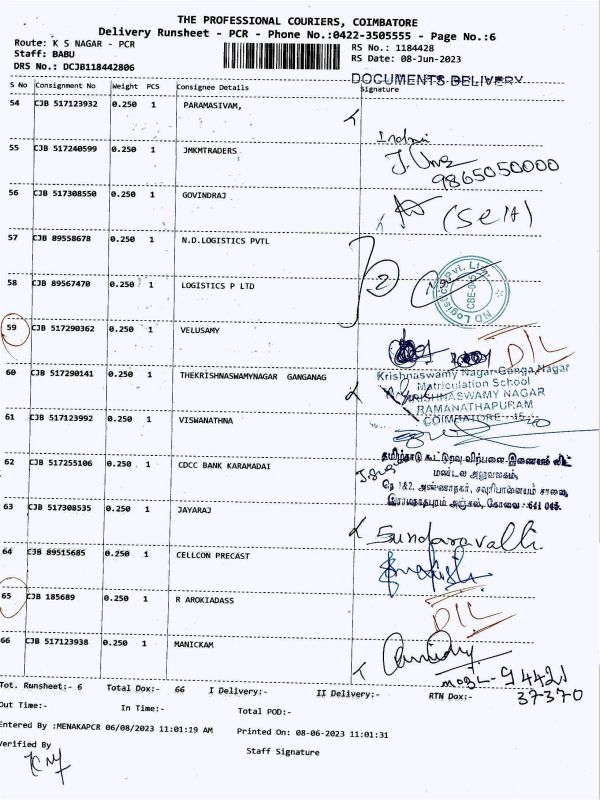 THE PROFESSIONAL COURIERS, COIMBATORE
Delivery Runsheet - PCR - Phone No.:0422-3505555 - Page No.:6
Route: K S NAGAR - PCR
Staff: BABU
DRS No.: DCJB118442806
RS No.: 1184428
RS Date: 08-Jun-2023
DOCUMENTS DELIVERY
S No Consignment No Weight PCS Consignee Details Signature
54 CJB 517123932 0.250 1 PARAMASIVAM,
55 CJB 517240599 0.250 1 JMKMTRADERS
9865050000
56 CJB 517308550 0.250 1 GOVINDRAJ
(Self)
57 CJB 89558678 0.250 1 N.D.LOGISTICS PVTL
58 CJB 89567470 0.250 1 LOGISTICS P LTD
ND Logistics Pvt. Ltd.
59 CJB 517290362 0.250 1 VELUSAMY
D/L
60 CJB 517290141 0.250 1 THEKRISHNASWAMYNAGAR GANGANAG
Krishnaswamy Nagar-Ganga Nagar
Matriculation School
KRISHNASWAMY NAGAR
RAMANATHAPURAM
COIMBATORE - 45
61 CJB 517123992 0.250 1 VISWANATHNA
62 CJB 517255106 0.250 1 CDCC BANK KARAMADAI
தமிழ்நாடு கூட்டுறவு விற்பனை இணையம் லிட்
மண்டல அலுவலகம்,
63 CJB 517308535 0.250 1 JAYARAJ
Sundaravalli
64 CJB 89515685 0.250 1 CELLCON PRECAST
65 CJB 185689 0.250 1 R AROKIADASS
D/L
66 CJB 517123938 0.250 1 MANICKAM
94421
37370
Tot. Runsheet:- 6 Total Dox:- 66 I Delivery:- II Delivery:- RTN Dox:-
Out Time:- In Time:- Total POD:-
Entered By :MENAKAPCR 06/08/2023 11:01:19 AM Printed On: 08-06-2023 11:01:31
Verified By Staff Signature